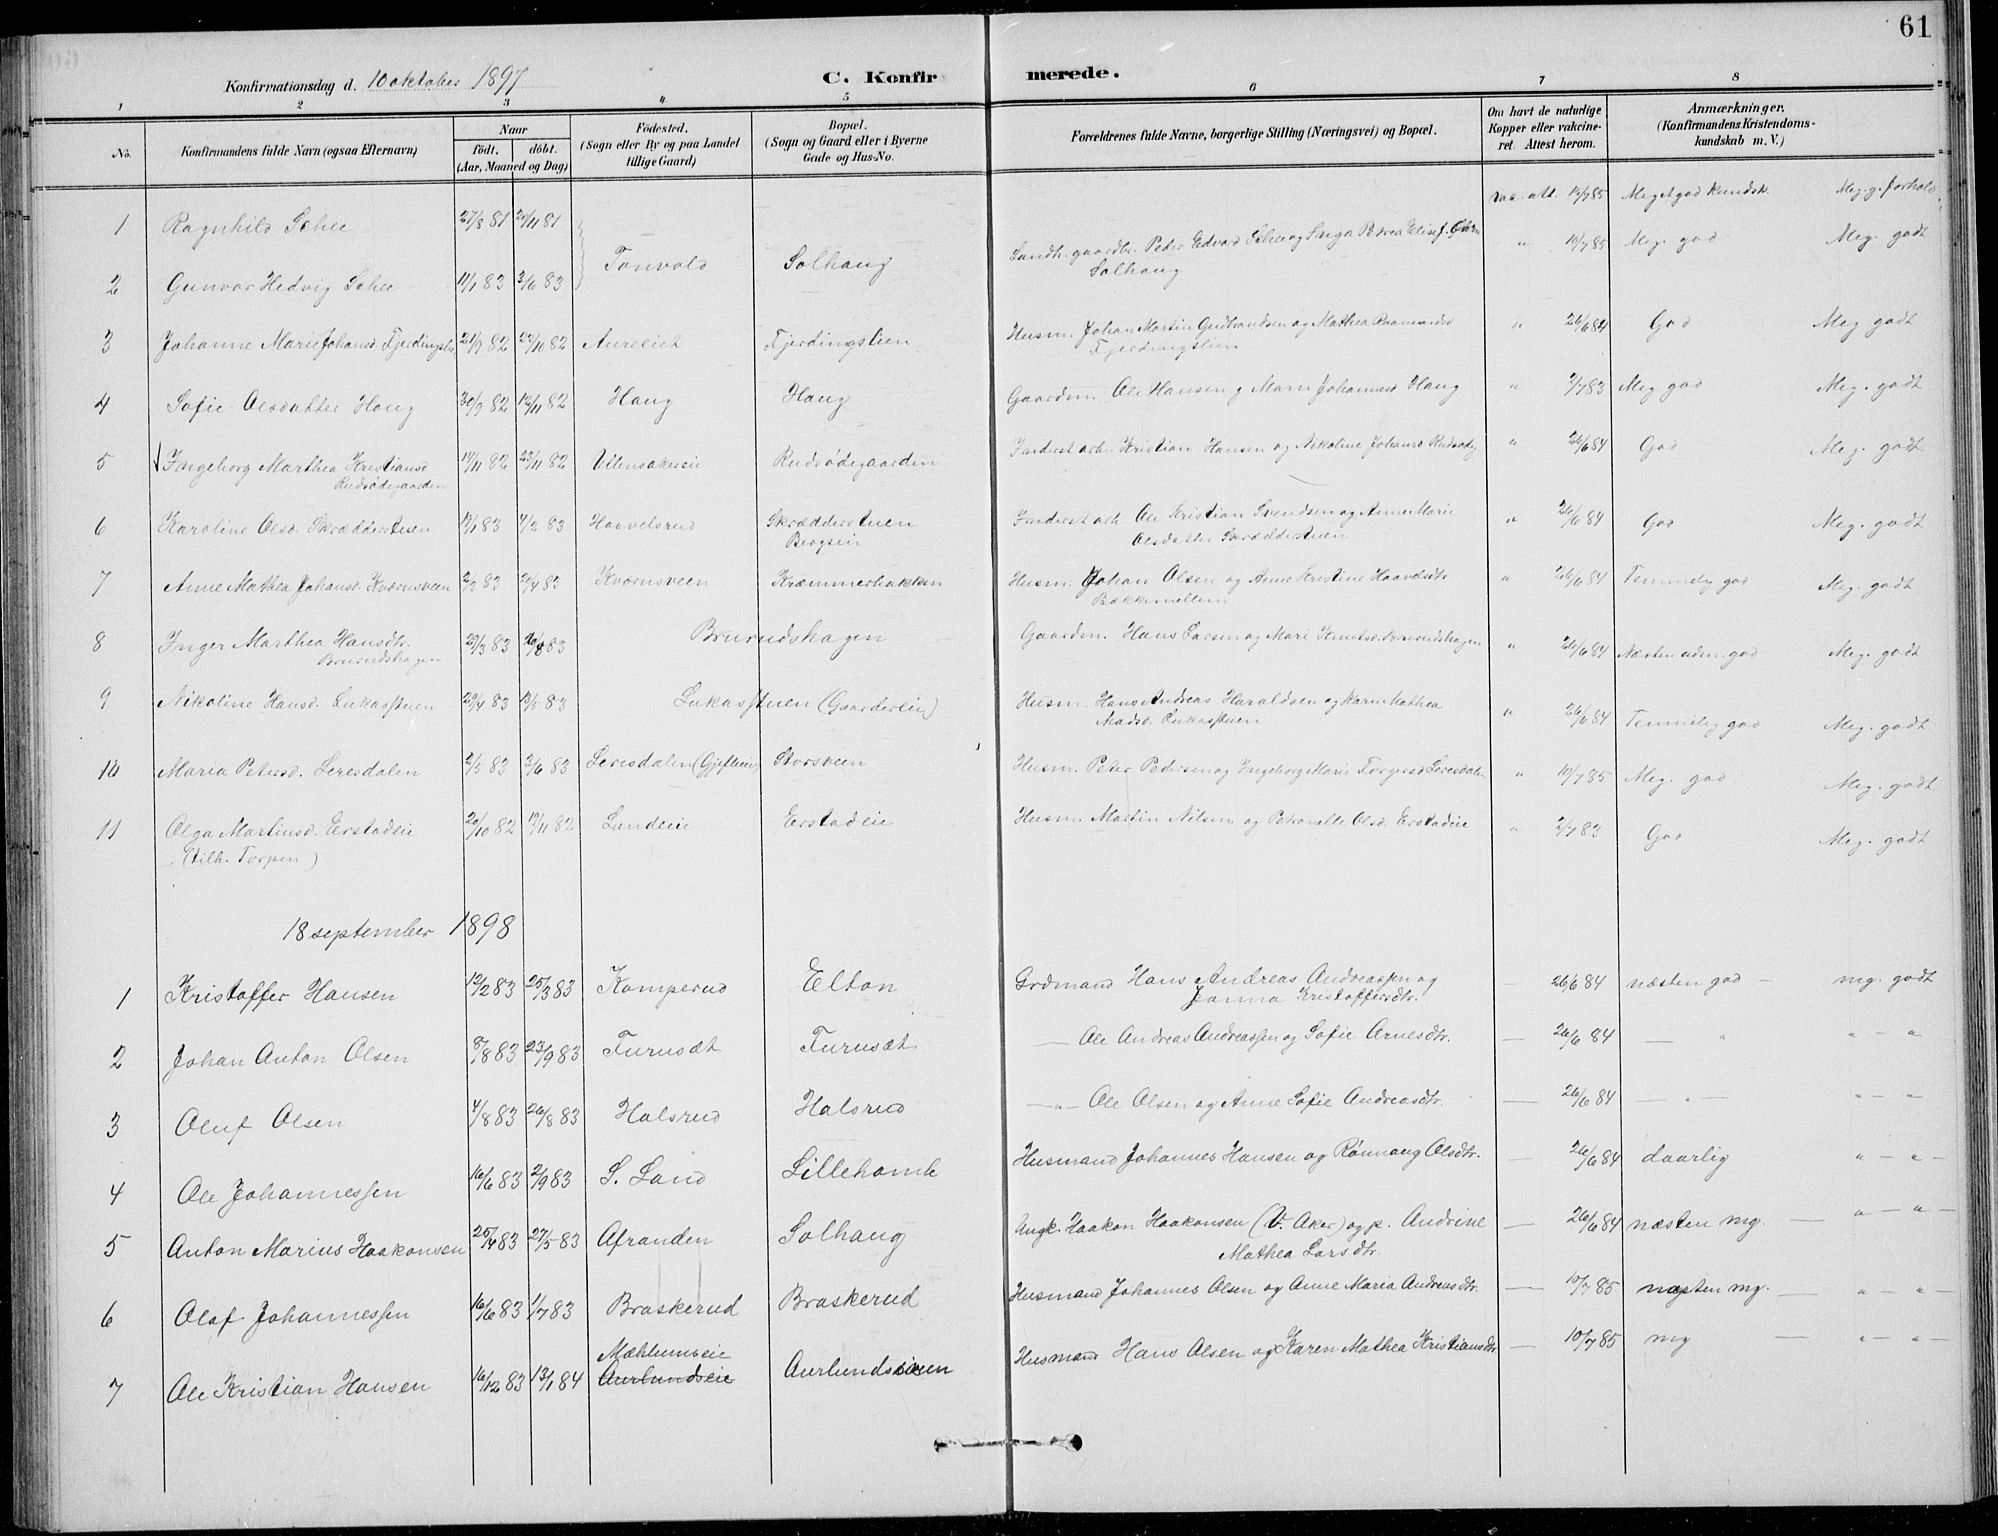 61
Konfirmationsdag d. 10 oktober 1897
C. Konfirmerede.
1 2 3 4 5 6 7 8
No.
Konfirmandens fulde Navn (ogsaa Efternavn)
Naar
födt. döbt.
(Aar, Maaned og Dag)
Födested.
(Sogn eller By og paa Landet
tillige Gaard)
Bopæl.
(Sogn og Gaard eller i Byerne
Gade og Hus-No.
Forældrenes fulde Navne, borgerlige Stilling (Næringsvei) og Bopæl.
Om havt de naturlige
Kopper eller vakcine-
ret. Attest herom.
Anmærkninger.
(Konfirmandens Kristendoms-
kundskab m. V.)
1 Ragnhild Schee 27/8 81 81 Vac. att. 85 Meget god kundsk. Meg. g. forhold
2 Gunvor Hedvig Schee 83 3/6 83 Tonvold Solhaug Landh. gaardbr. Peder Edvard Schee og Inga Petrea Elise f.
Solhaug
" 85 Meg. god Meg. godt
3 Johanne Marie Johansd. Fjerdingslie 21/9 82 82 Aureliet Fjerdingslien Husm. Johan Martin Gudbrandsen og Mathea
Fjerdingslien
" 26/6 84 God Meg godt
4 Sofie Olsdatter Haug 30/9 82 12/11 82 Haug Haug Gaardm. Ole Hansen og Marie Johannesd Haug " 2/7 83 Meg god Meg. godt
5 Ingeborg Marthea Kristiansd
Rudsødegaarden
14/11 82 23/11 82 Ullensakereie Rudsødegaarden Inderst arb. Kristian Hansen og Nikoline Johansd Rudsødg " 26/6 84 God Meg. godt
6 Karoline Olsd. Skrædderstuen 83 4/2 83 Haavelsrud Skrædderstuen
Bergseie
Inderst arb Ole Kristian Svendsen og Anne Marie
Olsdatter Skrædderstuen
" 26/6 84 God Meg. godt
7 Anne Mathea Johansd. Kværnsveen 83 83 Kværnsveen Kræmmerbakken Husm. Johan Olsen og Anne Kristine Haavelsdtr.
Bækkemellem
" 26/6 84 Temmelig god Meg. godt
8 Inger Marthea Hansdtr.
Brurudshagen
29/3 83 83 Brurudshagen Gaardm. Hans Larsen og Mari Knutsd. Brurudshagen " 26/6 84 Næsten udm. god Meg. godt
9 Nikoline Hansd. Lukasstuen 29/4 83 13/5 83 Lukasstuen (Gaarderlie) Husm. Hans Andreas Haraldsen og Karen Mathea
Madsd. Lukasstuen
" 26/6 84 Temmelig god Meg. godt
10 Maria Petersd. Leresdalen 2/5 83 3/6 83 Leresdalen Storsveen Husm. Peter Pedersen og Ingeborg Marie Torgersd Leresdalen " 10/7 85 Meg. god Meg. godt
11 Olga Martinsd. Eerstadeie
(tilh. Torpen)
20/10 82 19/11 82 Lundeie Eerstadeie Husm. Martin Nilsen og Petronelle Olsd. Erstadeie " 2/7 83 God Meg. godt
18 september 1898
1 Kristoffer Hansen 12/2 83 25/3 83 Komperud Elton Grdmand Hans Andreas Andreassen og
Janna Kristoffersdtr.
— 26/6 84 næsten god — mg. godt
2 Johan Anton Olsen 8/8 83 23/9 83 Furusæt Furusæt — Ole Andreas Andreassen og Sofie Arnesdtr. — 26/6 84 — " " — "
3 Oluf Olsen 4/8 83 26/8 83 Halsrud Halsrud —"— Ole Olsen og Anne Sofie Andreasdtr. — 26/6 84 — " — " — "
4 Ole Johannessen 16/6 83 2/9 83 S. Land Lillehamb Husmand Johannes Hansen og Rønnaug Olsdtr. — 26/6 84 daarlig " — " —
5 Anton Marius Haakonsen 25/4 83 27/5 83 Afranden Solhaug Ungk. Haakon Haakonsen (V. Aker) og p. Andrine
Mathea Larsdtr.
— 26/6 84 næsten mg. — " — " —
6 Olaf Johannessen 16/6 83 1/7 83 Braskerud Braskerud Husmand Johannes Olsen og Anne Maria Andreasdtr. — 10/7 85 næsten mg. — " — " —
7 Ole Kristian Hansen 16/12 83 13/1 84 Mæhlumseie
Aurlundseie
Aurlundsveen Husmand Hans Olsen og Karen Mathea Kristiansdtr. — 10/7 85 mg — " — "